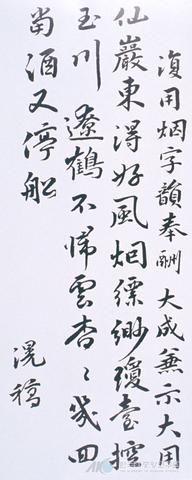 復用烟字韻奉酬 大成兼示大用
仙巖東淂好風烟縹緲瓊臺控
玉川 遼鶴不歸雲杳〻幾回
當酒又停船
滉稿